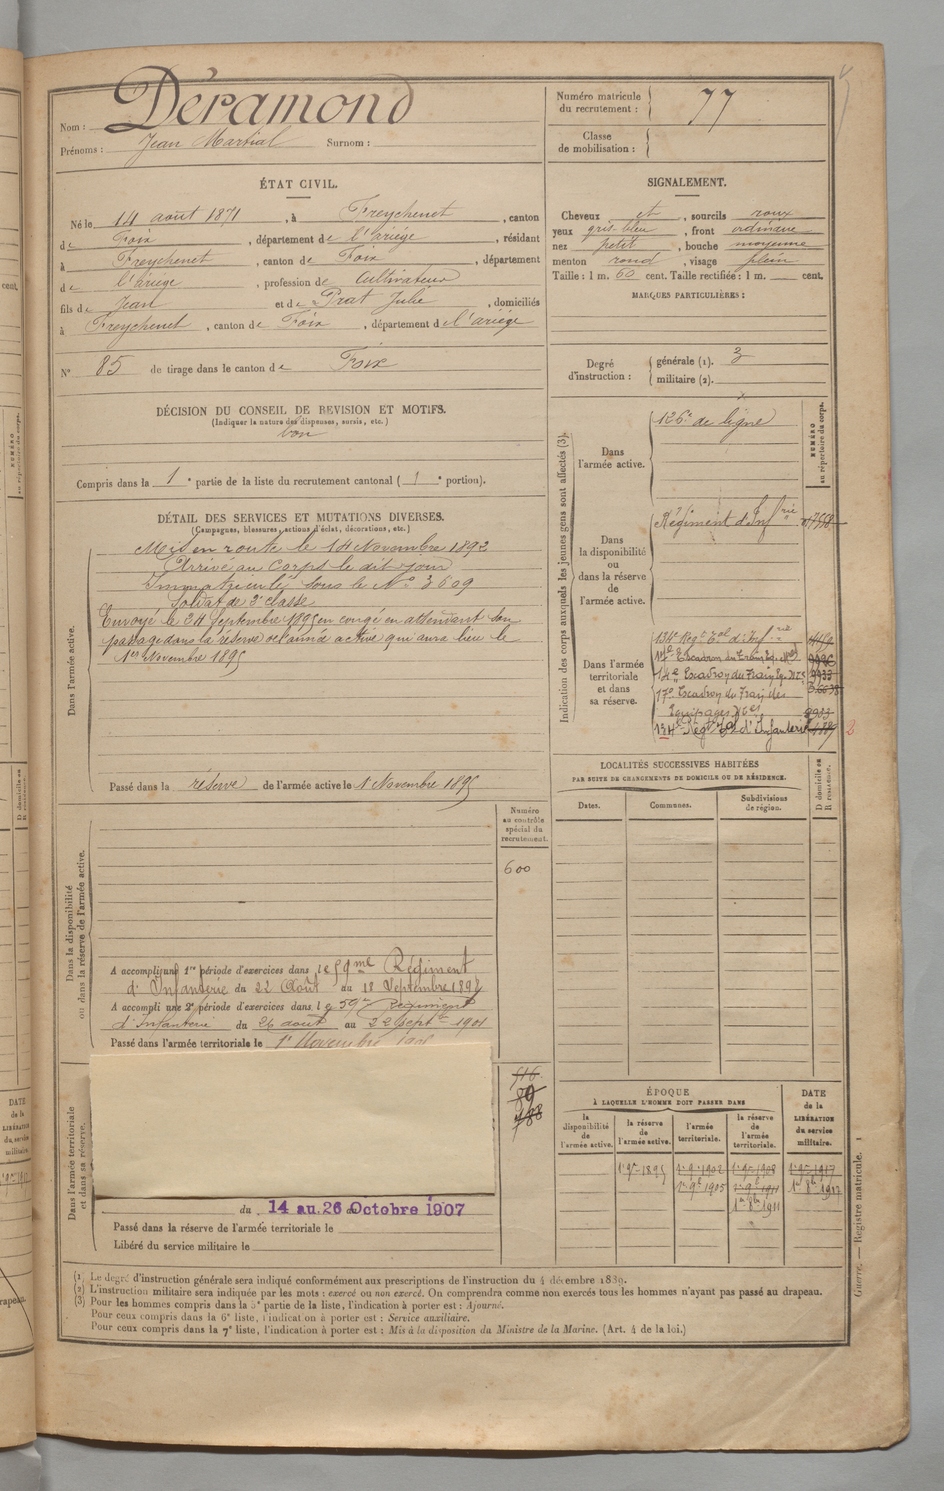 Nom : Déramond
Prénoms : Jean Martial Surnom :
ÉTAT CIVIL.
Né le 14 août 1871, à Freychenet, canton
de Foix, département de l'ariège, résidant
à Freychenet, canton de Foix, département
de l'ariège, profession de Cultivateur
fils de Jean et de Prat Julie, domiciliés
à Freychenet, canton de Foix, département de l'ariège
N° 85 de tirage dans le canton de Foix
DÉCISION DU CONSEIL DE REVISION ET MOTIFS.
(Indiquer la nature des dispenses, sursis, etc.)
bon
Compris dans la 1e partie de la liste du recrutement cantonal (1e portion).
DÉTAIL DES SERVICES ET MUTATIONS DIVERSES.
(Campagnes, blessures, actions d'éclat, décorations, etc.)
Dans l'armée active.
Mis en route le 14 Novembre 1892
Arrivé au Corps le dit jour
Immatriculé sous le N° 3609
Soldat de 2e classe
Envoyé le 24 Septembre 1895 en congé en attendant son
passage dans la réserve de l'armée active qui aura lieu le
1er Novembre 1895
Passé dans la réserve de l'armée active le 1 Novembre 1895
Dans la disponibilité
ou dans la réserve de l'armée active.
Numéro
au contrôle
spécial du
recrutement.
600
A accompli une 1re période d'exercices dans le 59me Régiment
d'Infanterie du 22 Août au 18 Septembre 189
A accompli une 2e période d'exercices dans le 59e Régiment
d'Infanterie du 26 août au 22 Septbre 1901
Passé dans l'armée territoriale le 1er Novembre
Dans l'armée territoriale
et dans sa réserve.
du 14 au 26 Octobre 1907
Passé dans la réserve de l'armée territoriale le
Libéré du service militaire le
Numéro matricule
du recrutement : 77
Classe
de mobilisation :
SIGNALEMENT.
Cheveux et, sourcils roux
yeux gris-bleu, front ordinaire
nez petit, bouche moyenne
menton rond, visage plein
Taille : 1 m. 60 cent. Taille rectifiée : 1 m. cent.
MARQUES PARTICULIÈRES :
Degré
d'instruction :
générale (1). 3
militaire (2).
Indication des corps auxquels les jeunes gens sont affectés (3).
NUMÉRO
au répertoire du corps.
Dans
l'armée active.
126e de ligne
Dans
la disponibilité
ou
dans la réserve
de
l'armée active.
Régiment d'Infrie
Dans l'armée
territoriale
et dans
sa réserve.
134e Regt Tal d'Infrie
14e Escadron du Train Eq. Mres
17e Escadron du Train des
Equipages Mres
134e Régt Tal d'Infanterie
2
LOCALITÉS SUCCESSIVES HABITÉES
PAR SUITE DE CHANGEMENTS DE DOMICILE OU DE RÉSIDENCE.
Dates. Communes. Subdivisions
de région.
D domicile ou
R résidence.
ÉPOQUE
À LAQUELLE L'HOMME DOIT PASSER DANS
la
disponibilité
de
l'armée active.
la réserve
de
l'armée active.
l'armée
territoriale.
la réserve
de
l'armée
territoriale.
DATE
de la
LIBÉRATION
du service
militaire.
1er 9bre 1895 1er 9bre 1902 1er 9bre 1908 1er 9bre 1917
1er 9bre 1905 1er 9bre 1911
1er 8bre 1911
(1) Le degré d'instruction générale sera indiqué conformément aux prescriptions de l'instruction du 4 décembre 1889.
(2) L'instruction militaire sera indiquée par les mots : exercé ou non exercé. On comprendra comme non exercés tous les hommes n'ayant pas passé au drapeau.
(3) Pour les hommes compris dans la 5e partie de la liste, l'indication à porter est : Ajourné.
Pour ceux compris dans la 6e liste, l'indication à porter est : Service auxiliaire.
Pour ceux compris dans la 7e liste, l'indication à porter est : Mis à la disposition du Ministre de la Marine. (Art. 4 de la loi.)
Guerre. — Registre matricule. 1